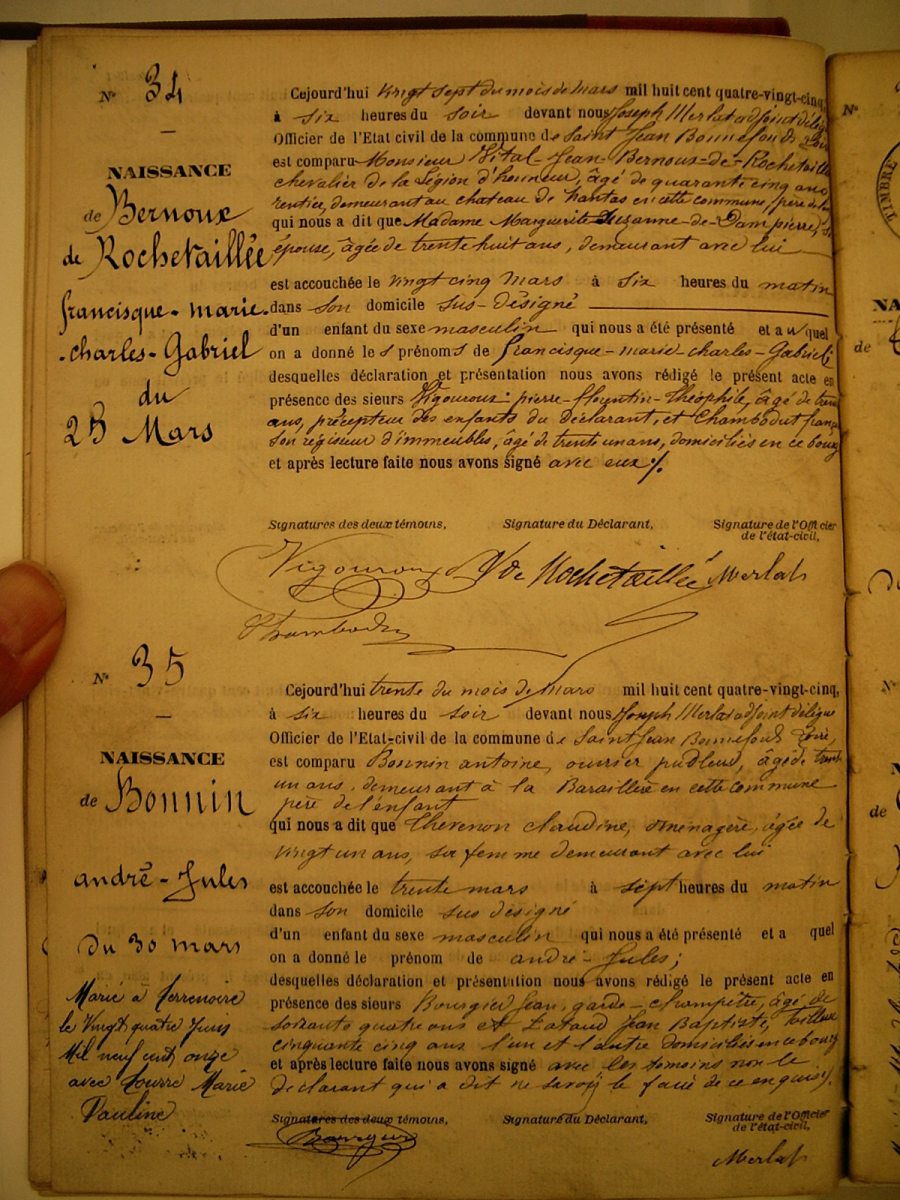 N° 34
NAISSANCE
de Bernoux
de Rochetaillée
francisque-marie-
-charles-Gabriel
du
25 Mars
Cejourd'hui vingt sept du mois de mars mil huit cent quatre-vingt-cinq,
à six heures du soir devant nous Joseph Merlat adjoint délégué
Officier de l'Etat civil de la commune de Saint Jean Bonnefonds Loire
est comparu Monsieur Vital-Jean-Bernoux-de-Rochetaillée
chevalier de la Légion d'honneur, âgé de quarante cinq ans
rentier, demeurant au chateau de Nantas en cette commune, père de
qui nous a dit que Madame Marguerite Suzanne-de-Dampierre, sa
épouse, âgée de trente huit ans, demeurant avec lui
est accouchée le vingt cinq Mars à six heures du matin
dans son domicile sus-désigné
d'un enfant du sexe masculin qui nous a été présenté et auquel
on a donné les prénoms de francisque-marie-charles-Gabriel;
desquelles déclaration et présentation nous avons rédigé le présent acte en
présence des sieurs Vigouroux pierre-florentin-Théophile, âgé de trente
ans, précepteur des enfants du Déclarant, et Chambodut françois
son régisseur d'immeubles, âgé de trente un ans, domiciliés en ce bourg
et après lecture faite nous avons signé avec eux ./.
Signatures des deux témoins, Signature du Déclarant, Signature de l'Officier
de l'état-civil,
Vigouroux V de Rochetaillée Merlat
Chambodut
N° 35
NAISSANCE
de Bonnin
andré-Jules
Du 30 mars
Marié à Terrenoire
le Vingt quatre Juin
Mil neuf cent onze
avec Marie
Pauline
Cejourd'hui trente du mois de mars mil huit cent quatre-vingt-cinq,
à six heures du soir devant nous Joseph Merlat adjoint délégué
Officier de l'Etat-civil de la commune de Saint Jean Bonnefonds Loire,
est comparu Bonnin antoine, ouvrier pudleur, âgé de trente
un ans, demeurant à la Baraillère en cette commune
père de l'enfant
qui nous a dit que Thevenon claudine, ménagère, âgée de
vingt un ans, sa femme demeurant avec lui
est accouchée le trente mars à sept heures du matin
dans son domicile sus désigné
d'un enfant du sexe masculin qui nous a été présenté et a quel
on a donné le prénom de andré-Jules;
desquelles déclaration et présentation nous avons rédigé le présent acte en
présence des sieurs Bourgier Jean, garde-champêtre, âgé de
soixante quatre ans et Jean Baptiste, tailleur
cinquante cinq ans l'un et l'autre domiciliés en ce bourg
et après lecture faite nous avons signé avec les témoins non le
déclarant qui a dit ne savoir le faire de ce enquis ./.
Signatures des deux témoins, Signature du Déclarant, Signature de l'Officier
de l'état-civil,
Bourgier
Merlat
N°
TIMBRE
NA
de
de